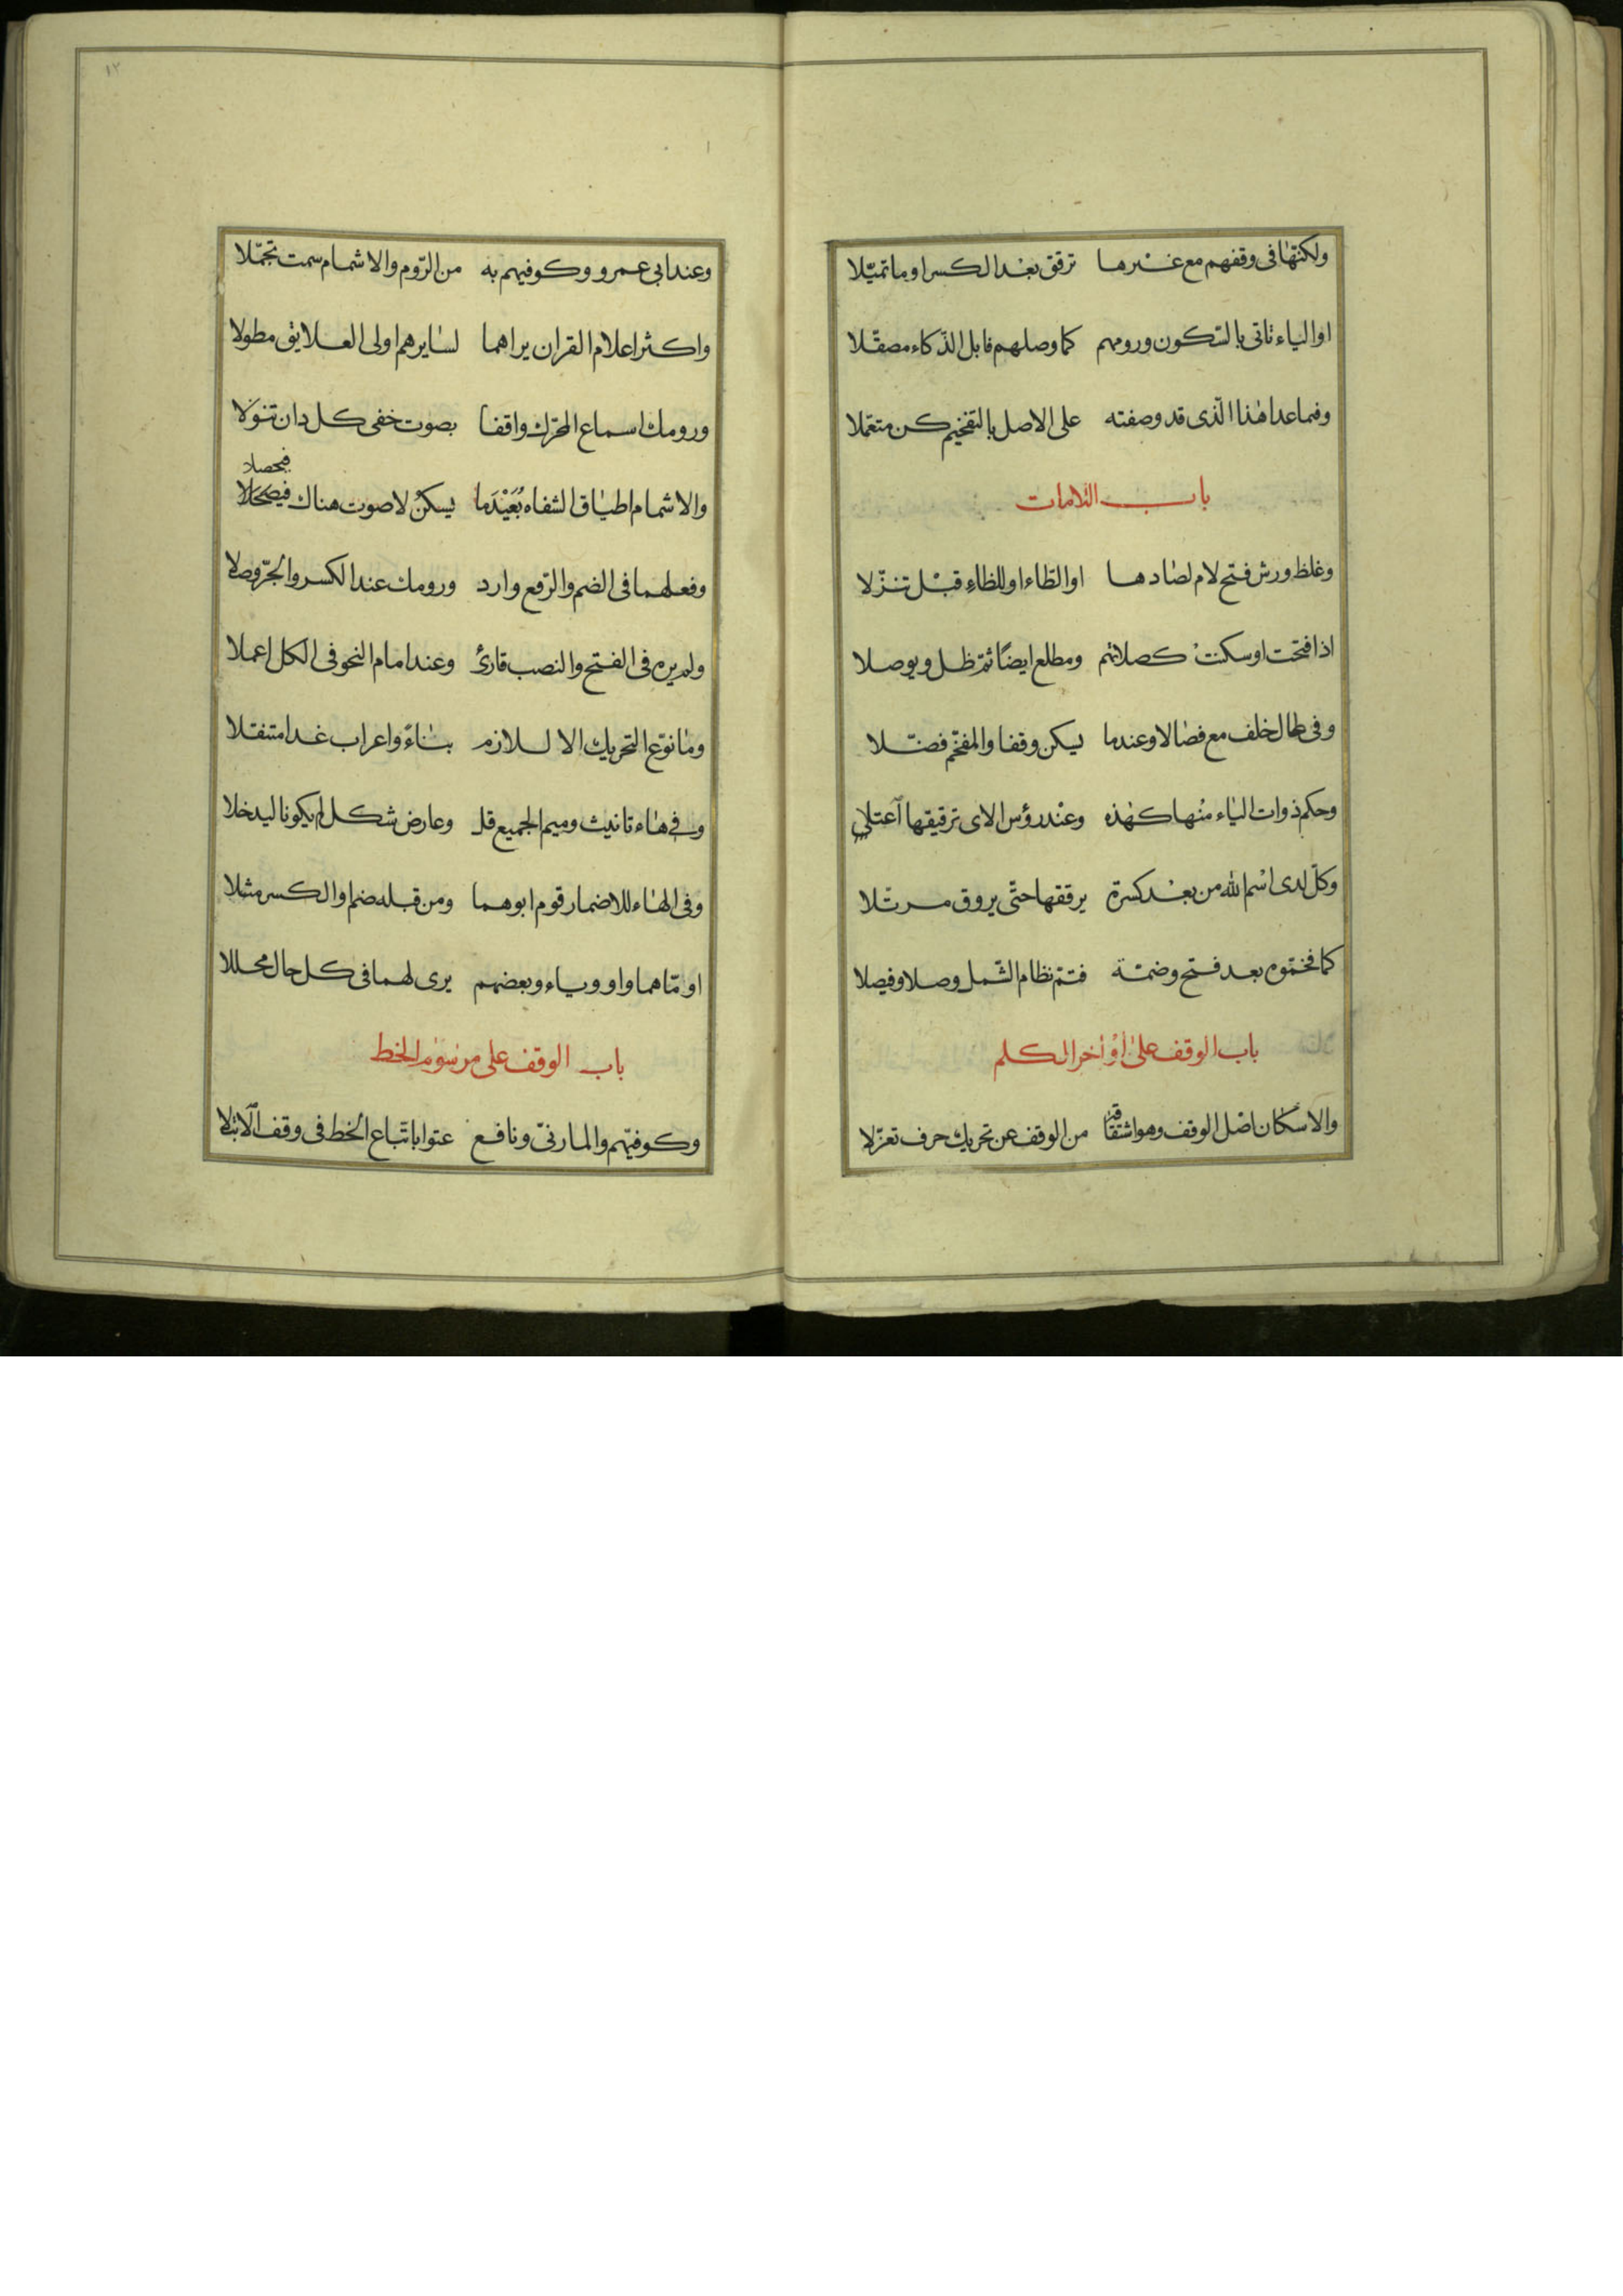 ولكنّها فى وقفهم مع غيرها ترقق بعد الكسر او ما تميّلا
او الياء تاتى بالسّكون ورومهم كما وصلهم فابل الذكاء مصقّلا
وفيما عدا هذا الّذى قد وصفته على الاصل بالتفخيم كن متعمّلا
باب اللامات
وغلظ ورش فتح لام لصادها او الطّاء او للظاء قبل تنزّلا
اذا فتحت او سكنت كصلاتهم ومطلع ايضًا ثمّ ظل ويوصلا
وفى طال خلف مع فصالا وعندما يسكن وقفا والمفخّم فضّلا
وحكم ذوات الياء منها كهذه وعند رؤس الاى ترقيقها اعتلى
وكلّ لدى اسم الله من بعد كسرة يرققها حتّى يروق مرتّلا
كما فخموه بعد فتح وضمّة فتمّ نظام الشّمل وصلا وفيصلا
باب الوقف على اواخر الكلم
والاسكان اصل الوقف وهو اشتقاقه من الوقف عن تحريك حرف تعزّلا
١٢
وعند ابى عمرو وكوفيهم به من الرّوم والاشمام سمت تجمّلا
واكثر اعلام القران يراهما لسايرهم اولى العلايق مطولا
ورومك اسماع المحرّك واقفا بصوت خفى كل دان تنولا
فيحصلا
والاشمام اطباق الشفاه بُعَيْدَما يسكن لا صوت هناك فيصحلا
وفعلهما فى الضم والرّفع وارد ورومك عند الكسر والجرّ وصلا
ولم يره فى الفتح والنصب قارئ وعند امام النحو فى الكل اعملا
وما نوّع التحريك الا للازم بناءً واعراب غدا متنقلا
وفى هاء تانيث وميم الجميع قل وعارض شكل لم يكونا ليدخلا
وفى الهاء للاضمار قوم ابوهما ومن قبله ضم او الكسر مثلا
او امّاهما واو وياء وبعضهم يرى لهما فى كل حال محللا
باب الوقف على مرسوم الخط
وكوفيّهم والمازنىّ ونافع عنوا باتّباع الخط فى وقف الابتلا